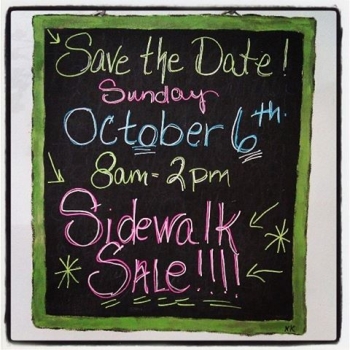 Save the Date!
Sunday
October 6th.
8am - 2pm
Sidewalk
SALE!!!!
KK